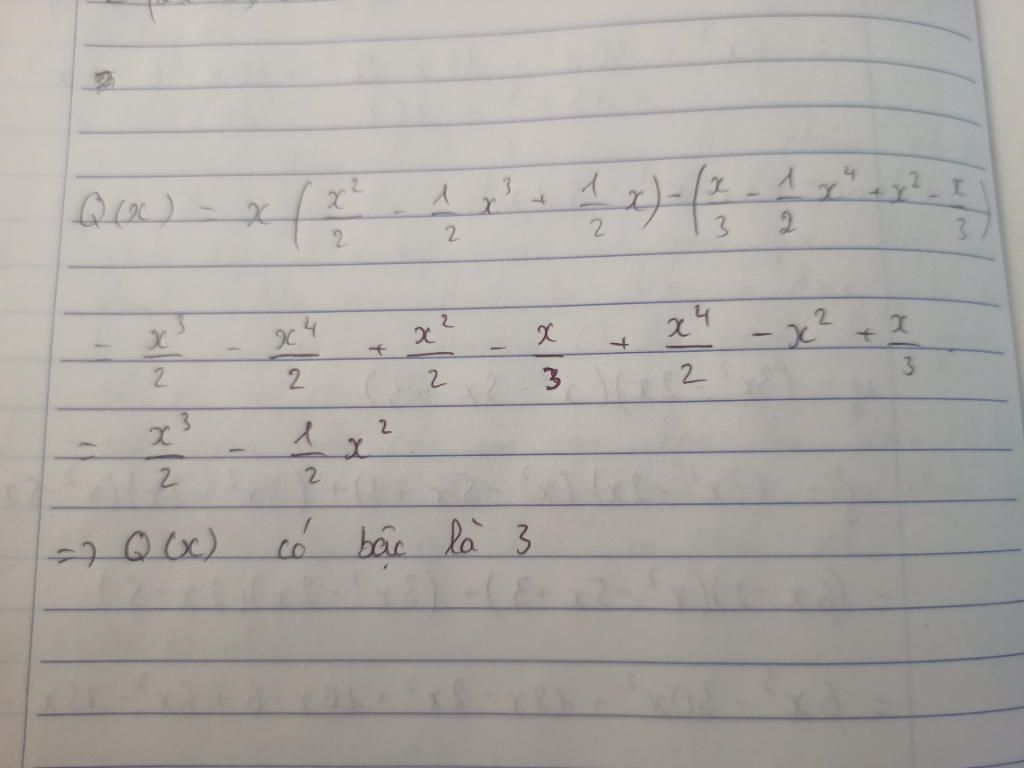 Q(x) = x (x²/2 - 1/2 x³ + 1/2 x) - (x/3 - 1/2 x⁴ + x² - x/3)
= x³/2 - x⁴/2 + x²/2 - x/3 + x⁴/2 - x² + x/3
= x³/2 - 1/2 x²
=> Q(x) có bậc là 3